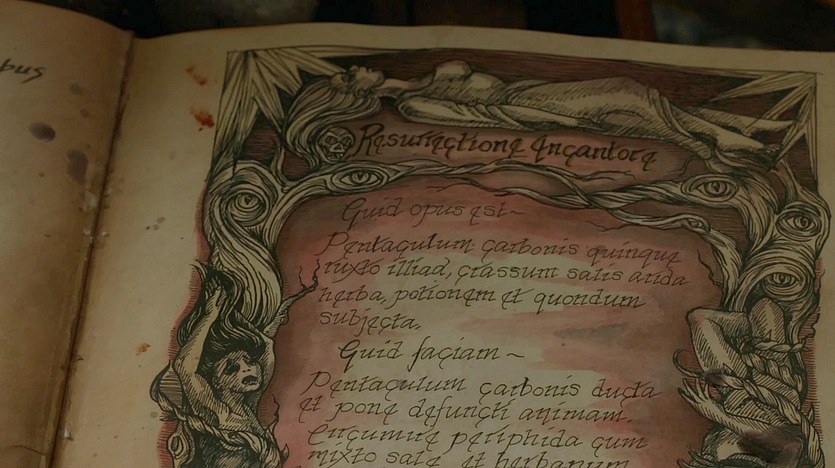 bus
Resurrectione Incantore
Quid opus est~
Pentaculum carbonis quinque
mixto illiad, crassum salis arida
herba, potionem et quondum
subjecta.
Quid faciam~
Pentaculum carbonis ducta
et pone defuncti animam.
Circumire periphida cum
mixto sale et herbanum